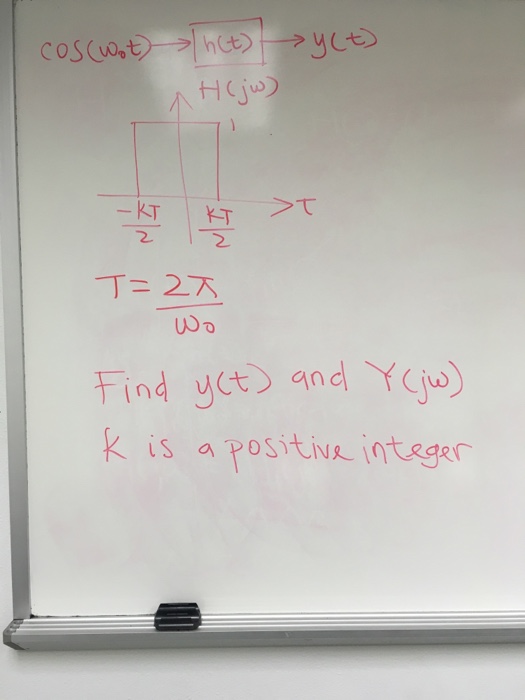 cos(ω₀t) → h(t) → y(t)
H(jω)
1
-KT/2 KT/2 τ
T = 2π/ω₀
Find y(t) and Y(jω)
K is a positive integer